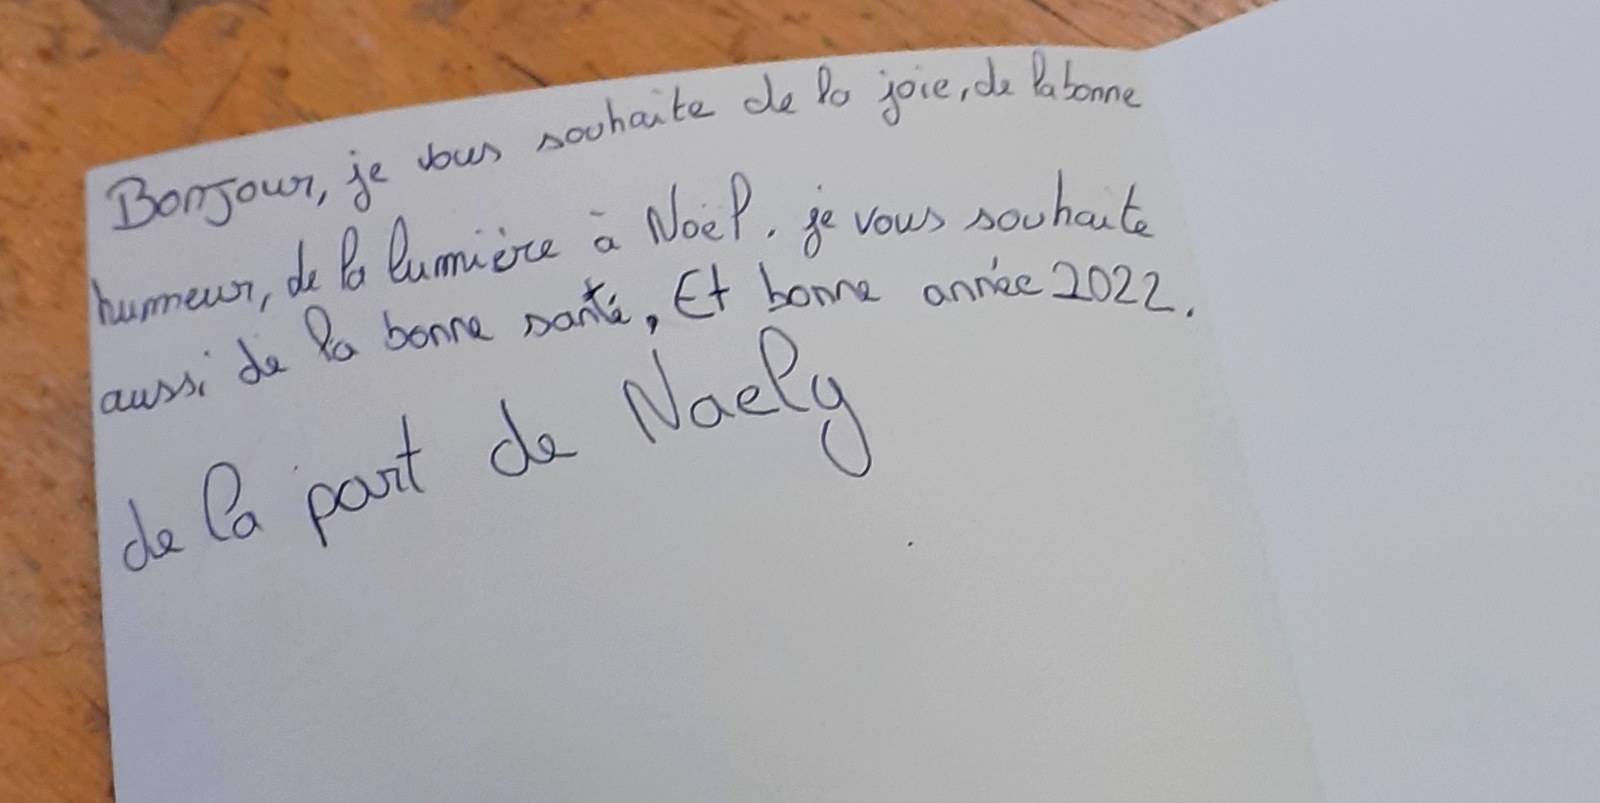 Bonjour, je vous souhaite de la joie, de la bonne
humeur, de la lumière à Noël. je vous souhaite
aussi de la bonne santé, Et bonne année 2022.
de la part de Naely